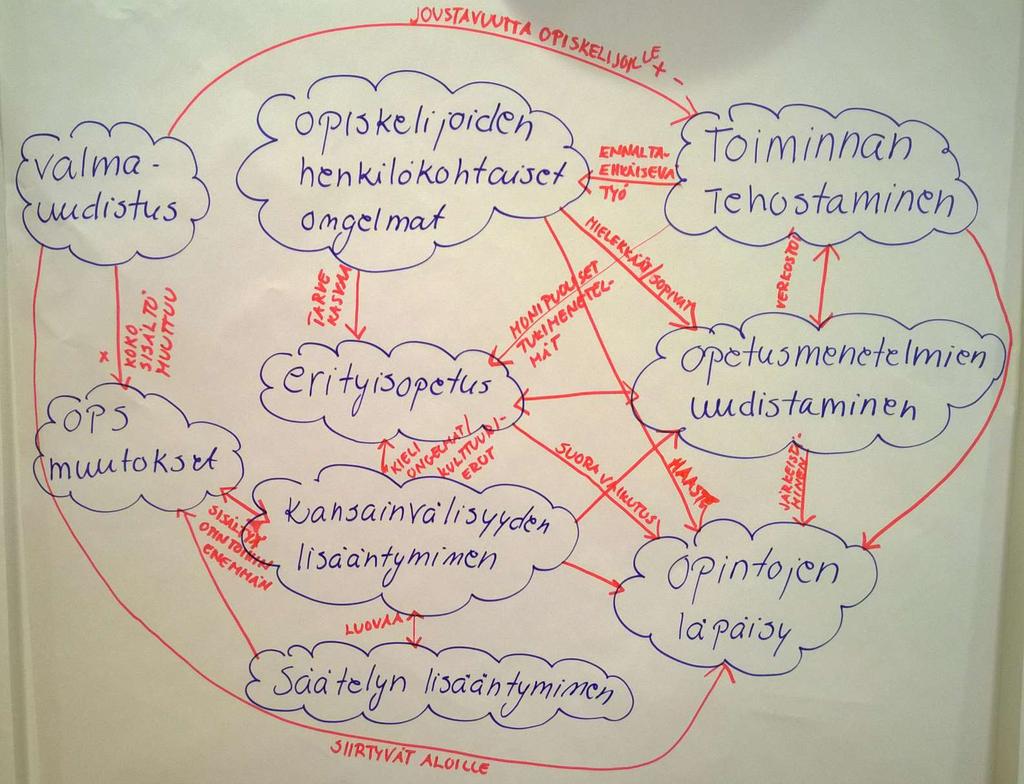 JOUSTAVUUTTA OPISKELIJOILLE + -
Valma-
uudistus
Opiskelijoiden
henkilökohtaiset
ongelmat
ENNALTA-
EHKÄISEVÄ
TYÖ
Toiminnan
Tehostaminen
TARVE
KASVAA
MIELEKKÄÄT/SOPIVAT
VERKOSTOT
MONIPUOLISET
TUKIMENETEL-
MÄT
x KOKO
SISÄLTÖ
MUUTTUU
erityisopetus
Opetusmenetelmien
uudistaminen
OPS
muutokset
KIELI
ONGELMAT/
KULTTUURI-
EROT
SUORA VAIKUTUS
HAASTE
JÄRKEISTÄ-
MINEN
SISÄLTÖÄ
OPINTOIHIN
ENEMMÄN
Kansainvälisyyden
lisääntyminen
Opintojen
läpäisy
LUOVAA
Säätelyn lisääntyminen
SIIRTYVÄT ALOILLE